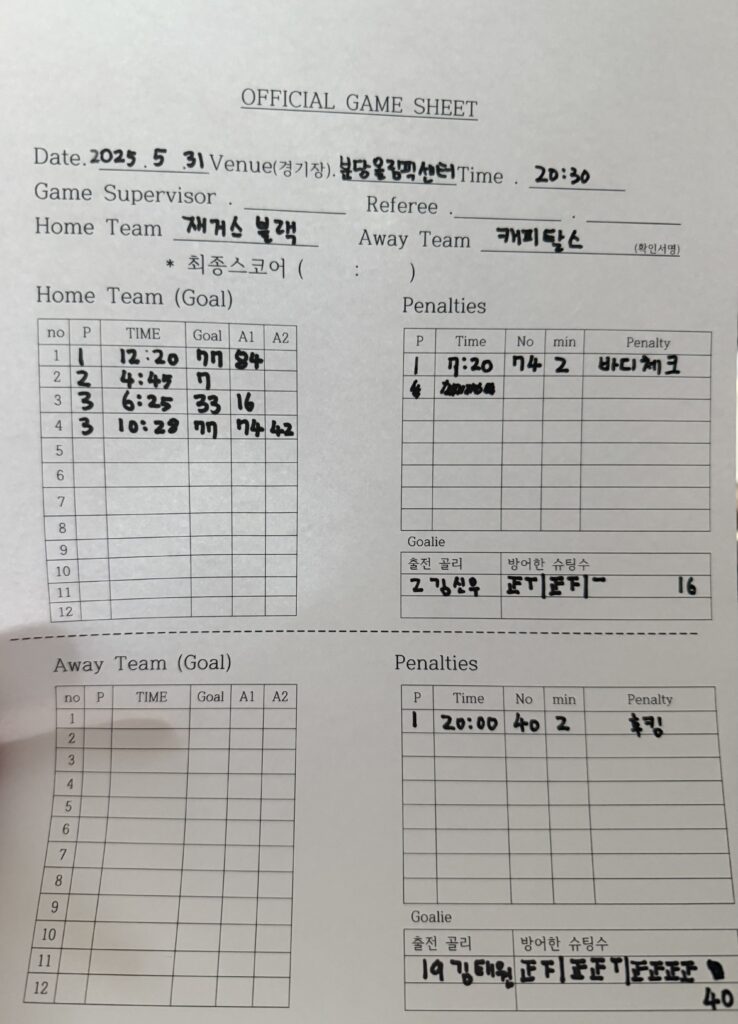 OFFICIAL GAME SHEET
Date. 2025 . 5 . 31 Venue(경기장). 분당올림픽센터 Time . 20:30
Game Supervisor . Referee . .
Home Team 재거스 블랙 Away Team 캐피탈스 (확인서명)
* 최종스코어 ( : )
Home Team (Goal)
no P TIME Goal A1 A2
1 1 12:20 77 84
2 2 4:45 7
3 3 6:25 33 16
4 3 10:28 77 74 42
5
6
7
8
9
10
11
12
Penalties
P Time No min Penalty
1 7:20 74 2 바디체크
Goalie
출전 골리 방어한 슈팅수
2 김신우 16
Away Team (Goal)
no P TIME Goal A1 A2
1
2
3
4
5
6
7
8
9
10
11
12
Penalties
P Time No min Penalty
1 20:00 40 2 후킹
Goalie
출전 골리 방어한 슈팅수
19 김태원
40